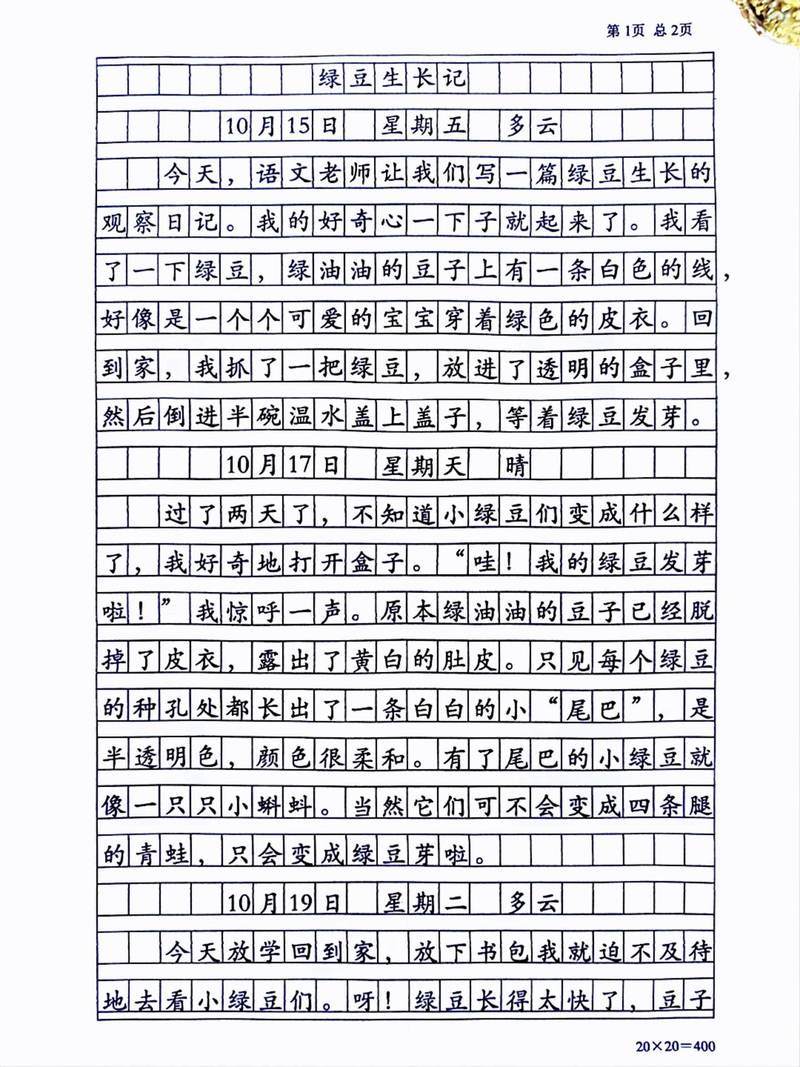 第1页 总2页
绿豆生长记
10月15日 星期五 多云
今天，语文老师让我们写一篇绿豆生长的
观察日记。我的好奇心一下子就起来了。我看
了一下绿豆，绿油油的豆子上有一条白色的线，
好像是一个个可爱的宝宝穿着绿色的皮衣。回
到家，我抓了一把绿豆，放进了透明的盒子里，
然后倒进半碗温水盖上盖子，等着绿豆发芽。
10月17日 星期天 晴
过了两天了，不知道小绿豆们变成什么样
了，我好奇地打开盒子。“哇！我的绿豆发芽
啦！”我惊呼一声。原本绿油油的豆子已经脱
掉了皮衣，露出了黄白的肚皮。只见每个绿豆
的种孔处都长出了一条白白的小“尾巴”，是
半透明色，颜色很柔和。有了尾巴的小绿豆就
像一只只小蝌蚪。当然它们可不会变成四条腿
的青蛙，只会变成绿豆芽啦。
10月19日 星期二 多云
今天放学回到家，放下书包我就迫不及待
地去看小绿豆们。呀！绿豆长得太快了，豆子
20×20=400